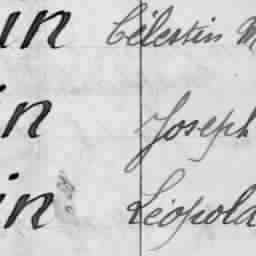 in Célestin M
in Joseph
in Léopold